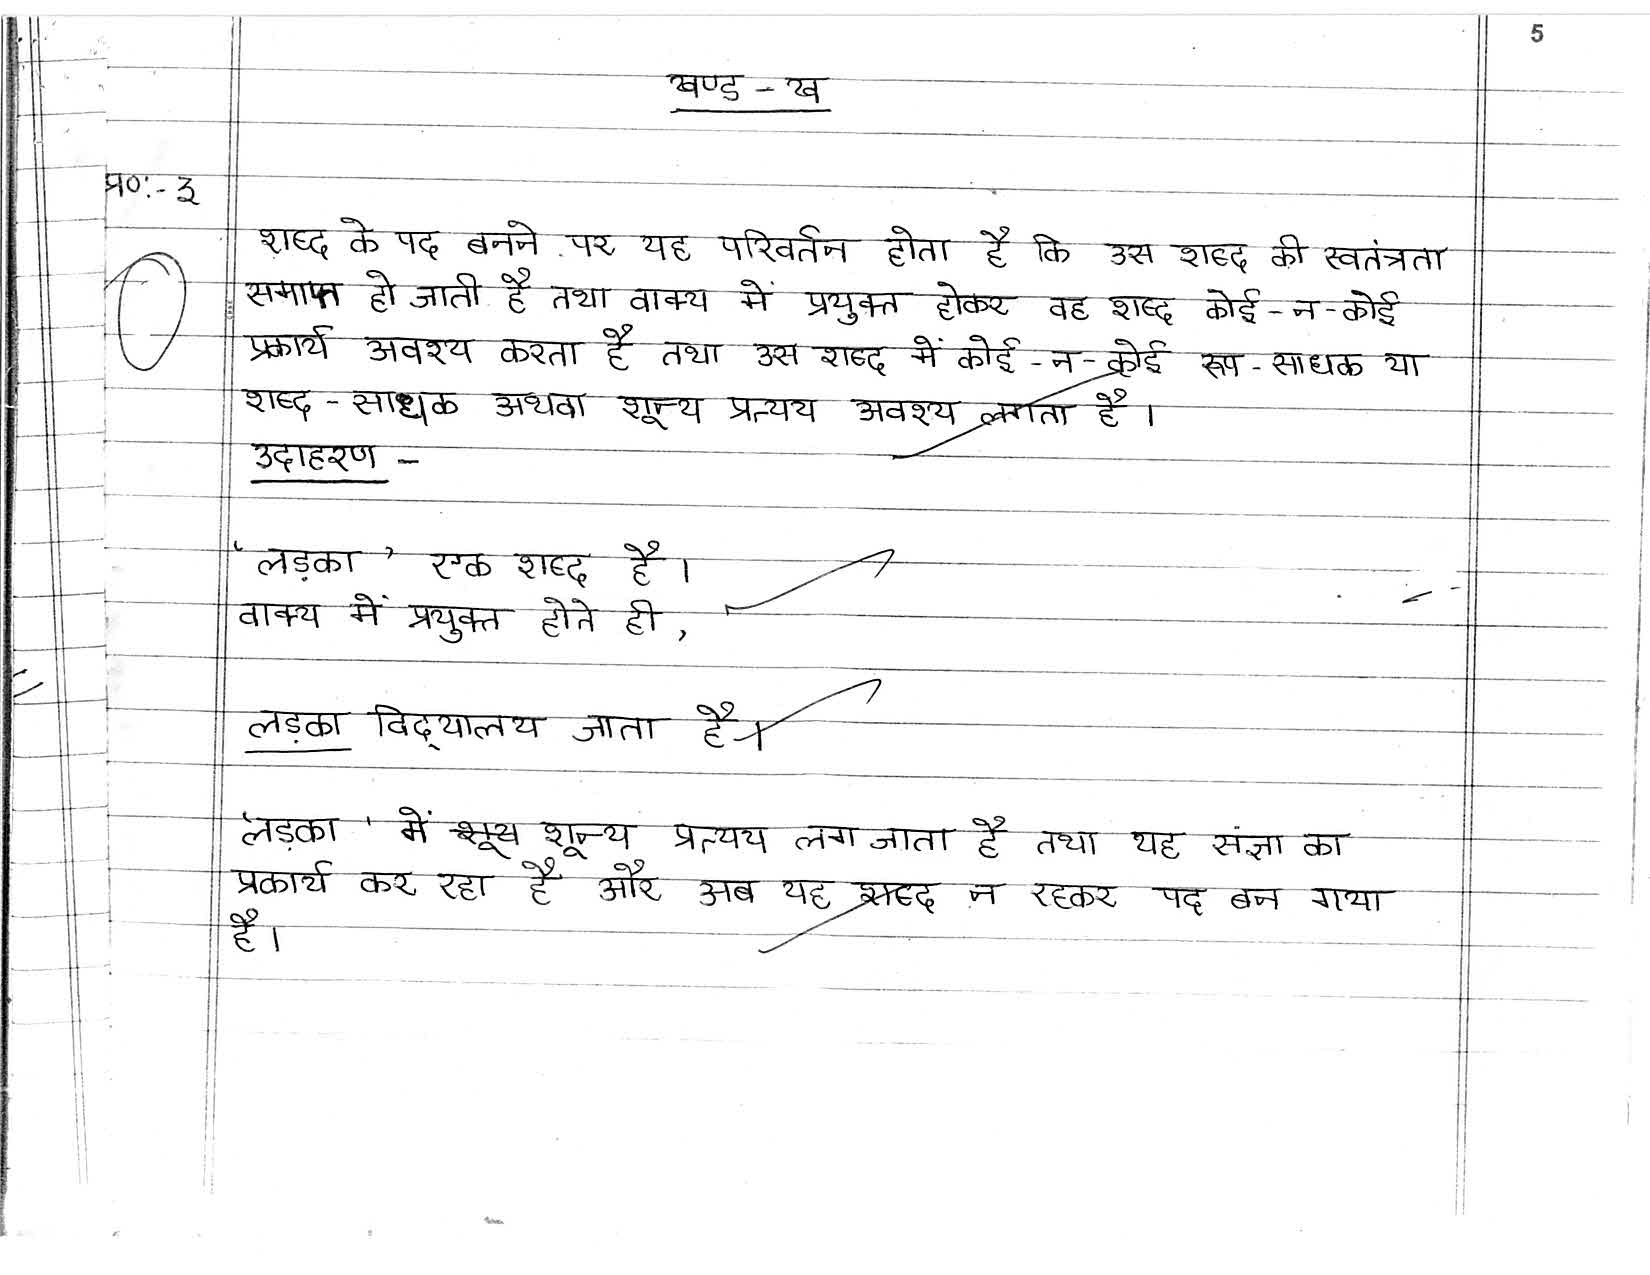 5
खण्ड - ख
प्र०:- 3
शब्द के पद बनने पर यह परिवर्तन होता है कि उस शब्द की स्वतंत्रता
समाप्त हो जाती है तथा वाक्य में प्रयुक्त होकर वह शब्द कोई - न - कोई
प्रकार्य अवश्य करता है तथा उस शब्द में कोई - न - कोई रूप - साधक या
शब्द - साधक अथवा शून्य प्रत्यय अवश्य लगता है।
उदाहरण -
'लड़का' एक शब्द है।
वाक्य में प्रयुक्त होते ही,
लड़का विद्यालय जाता है।
'लड़का' में शून्य प्रत्यय लग जाता है तथा यह संज्ञा का
प्रकार्य कर रहा है और अब यह शब्द न रहकर पद बन गया
है।